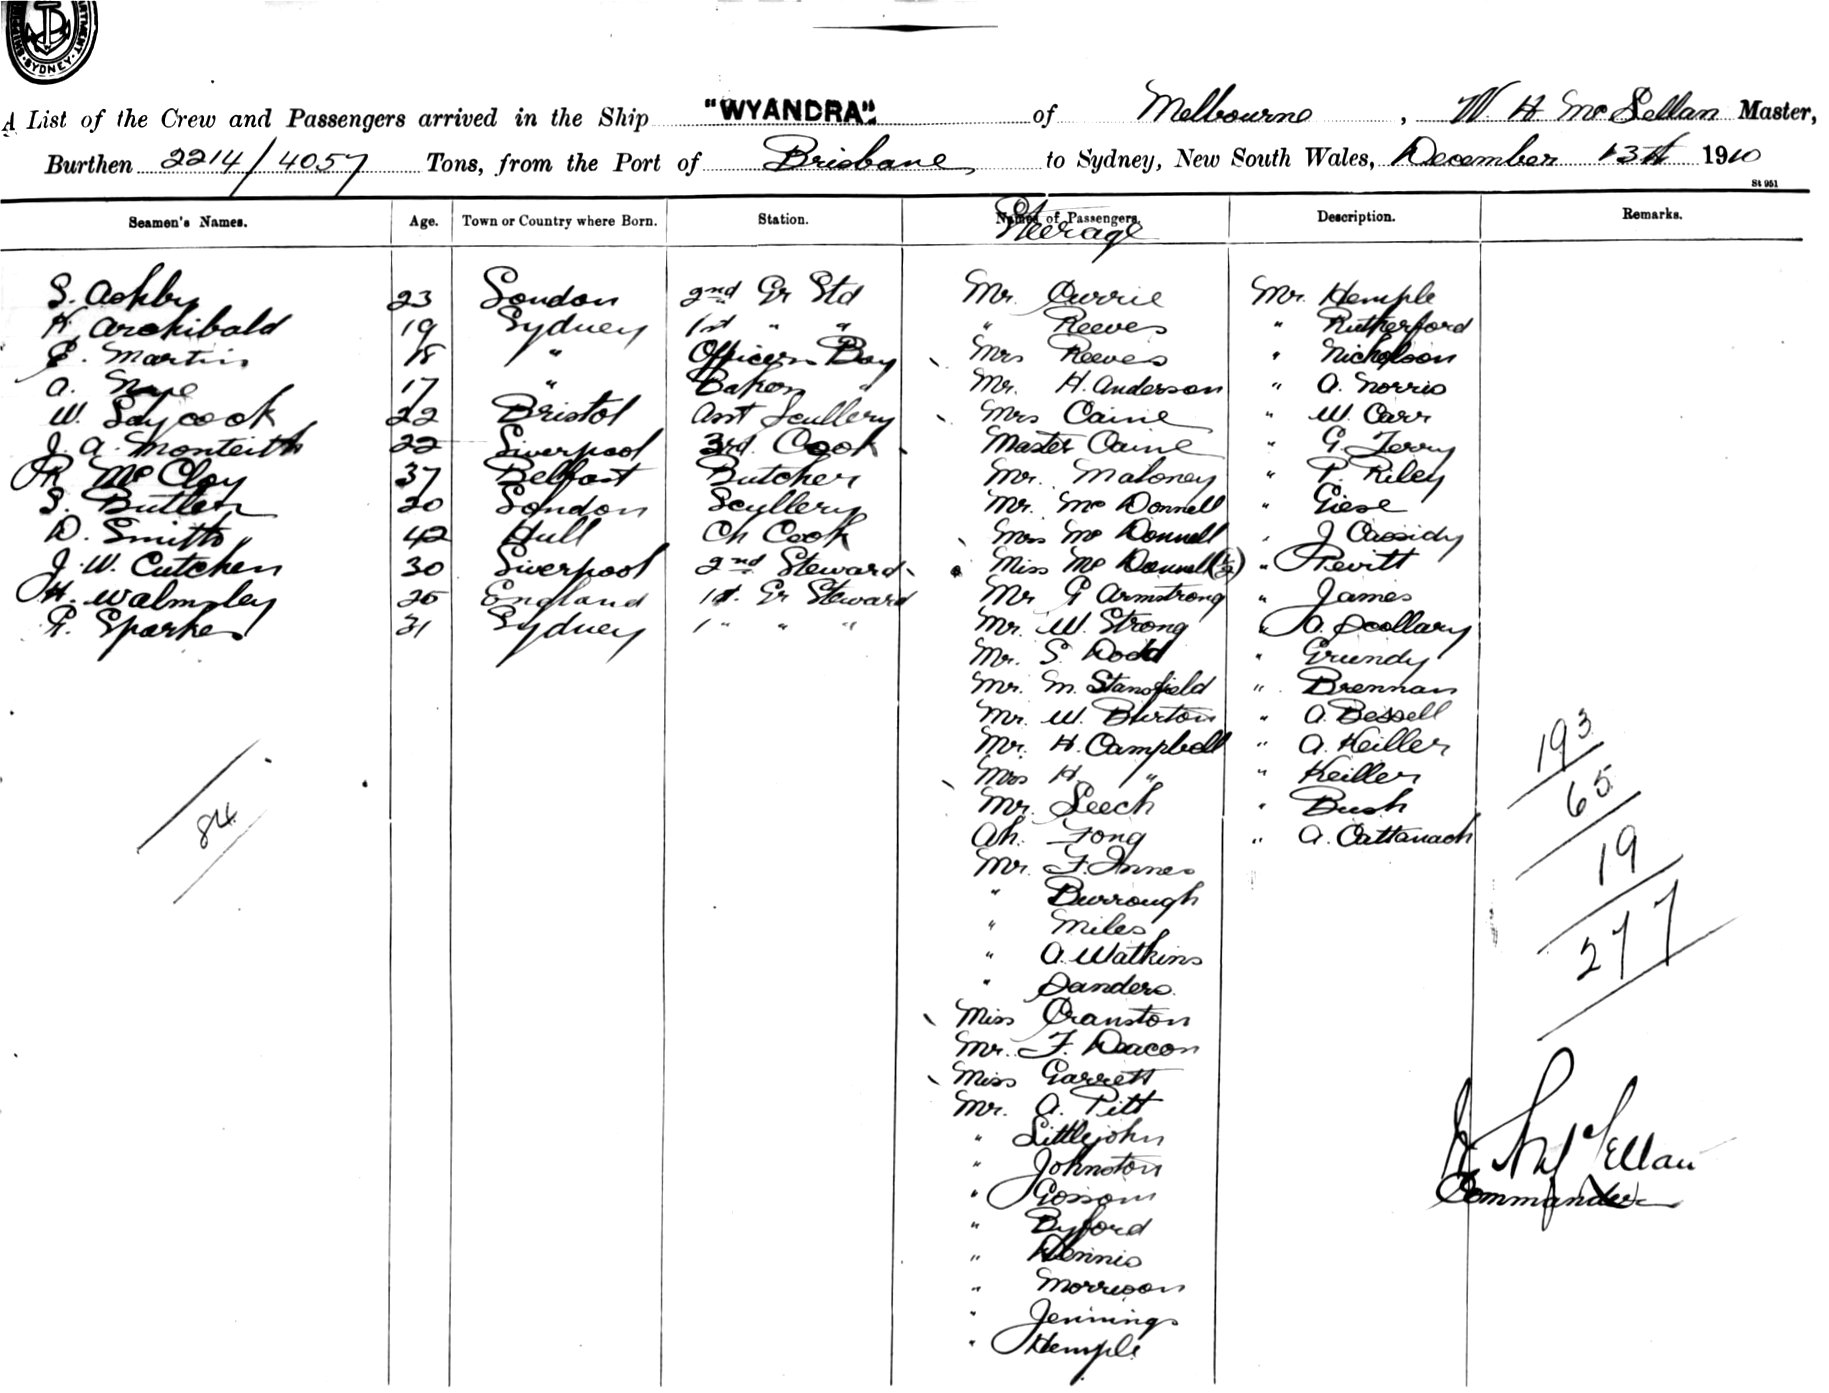 SYDNEY
A List of the Crew and Passengers arrived in the Ship "WYANDRA" of Melbourne, W. H. McLellan Master,
Burthen 2214/4057 Tons, from the Port of Brisbane to Sydney, New South Wales, December 13th 1910
St 951
Seamen's Names. Age. Town or Country where Born. Station. Names of Passengers. Description. Remarks.
Steerage
S. Ashby 23 London 2nd Gr Std Mr. Currie Mr. Hemple
H. Archibald 19 Sydney 1st " " " Reeves " Rutherford
E. Martin 18 " Officers Boy Mrs Reeves " Nicholson
A. 17 " Bakers " Mr. H. Anderson " A. Norris
W. Laycock 22 Bristol Asst Scullery Mrs Caine " W. Carr
J. A. Monteith 22 Liverpool 3rd Cook Master Caine " G. Terry
R McCloy 37 Belfast Butcher Mr. Maloney " P. Riley
S. Butler 20 London Scullery Mr. McDonnell " Giese
D. Smith 42 Hull Ch Cook Mrs McDonnell " J Cassidy
J. W. Cutchen 30 Liverpool 2nd Steward Miss McDonnell (1/2) " Pevitt
H. Walmsley 25 England 1st. Gr Steward Mr G Armstrong " James
G. Sparkes 31 Sydney 1 " " " Mr. W. Strong " A. Scollary
Mr. S. Dodd " Grundy
Mr. M. Stansfield " Brennan
Mr. W. Burton " A. Bessell
Mr. H. Campbell " A. Keiller
Mrs H. " " Keiller
Mr. Leech " Bush
Ah. Fong " A. Cattanach
Mr. F. Innes
" Burrough
" Miles
" A. Watkins
" Sanders
Miss Cranston
Mr. F. Deacon
Miss Garrett
Mr. A. Pitt
" Littlejohn
" Johnston
" Gossom
" Byford
" Dennis
" Morrison
" Jennings
" Hemple
84
193
65
19
277
W H McLellan
Commander